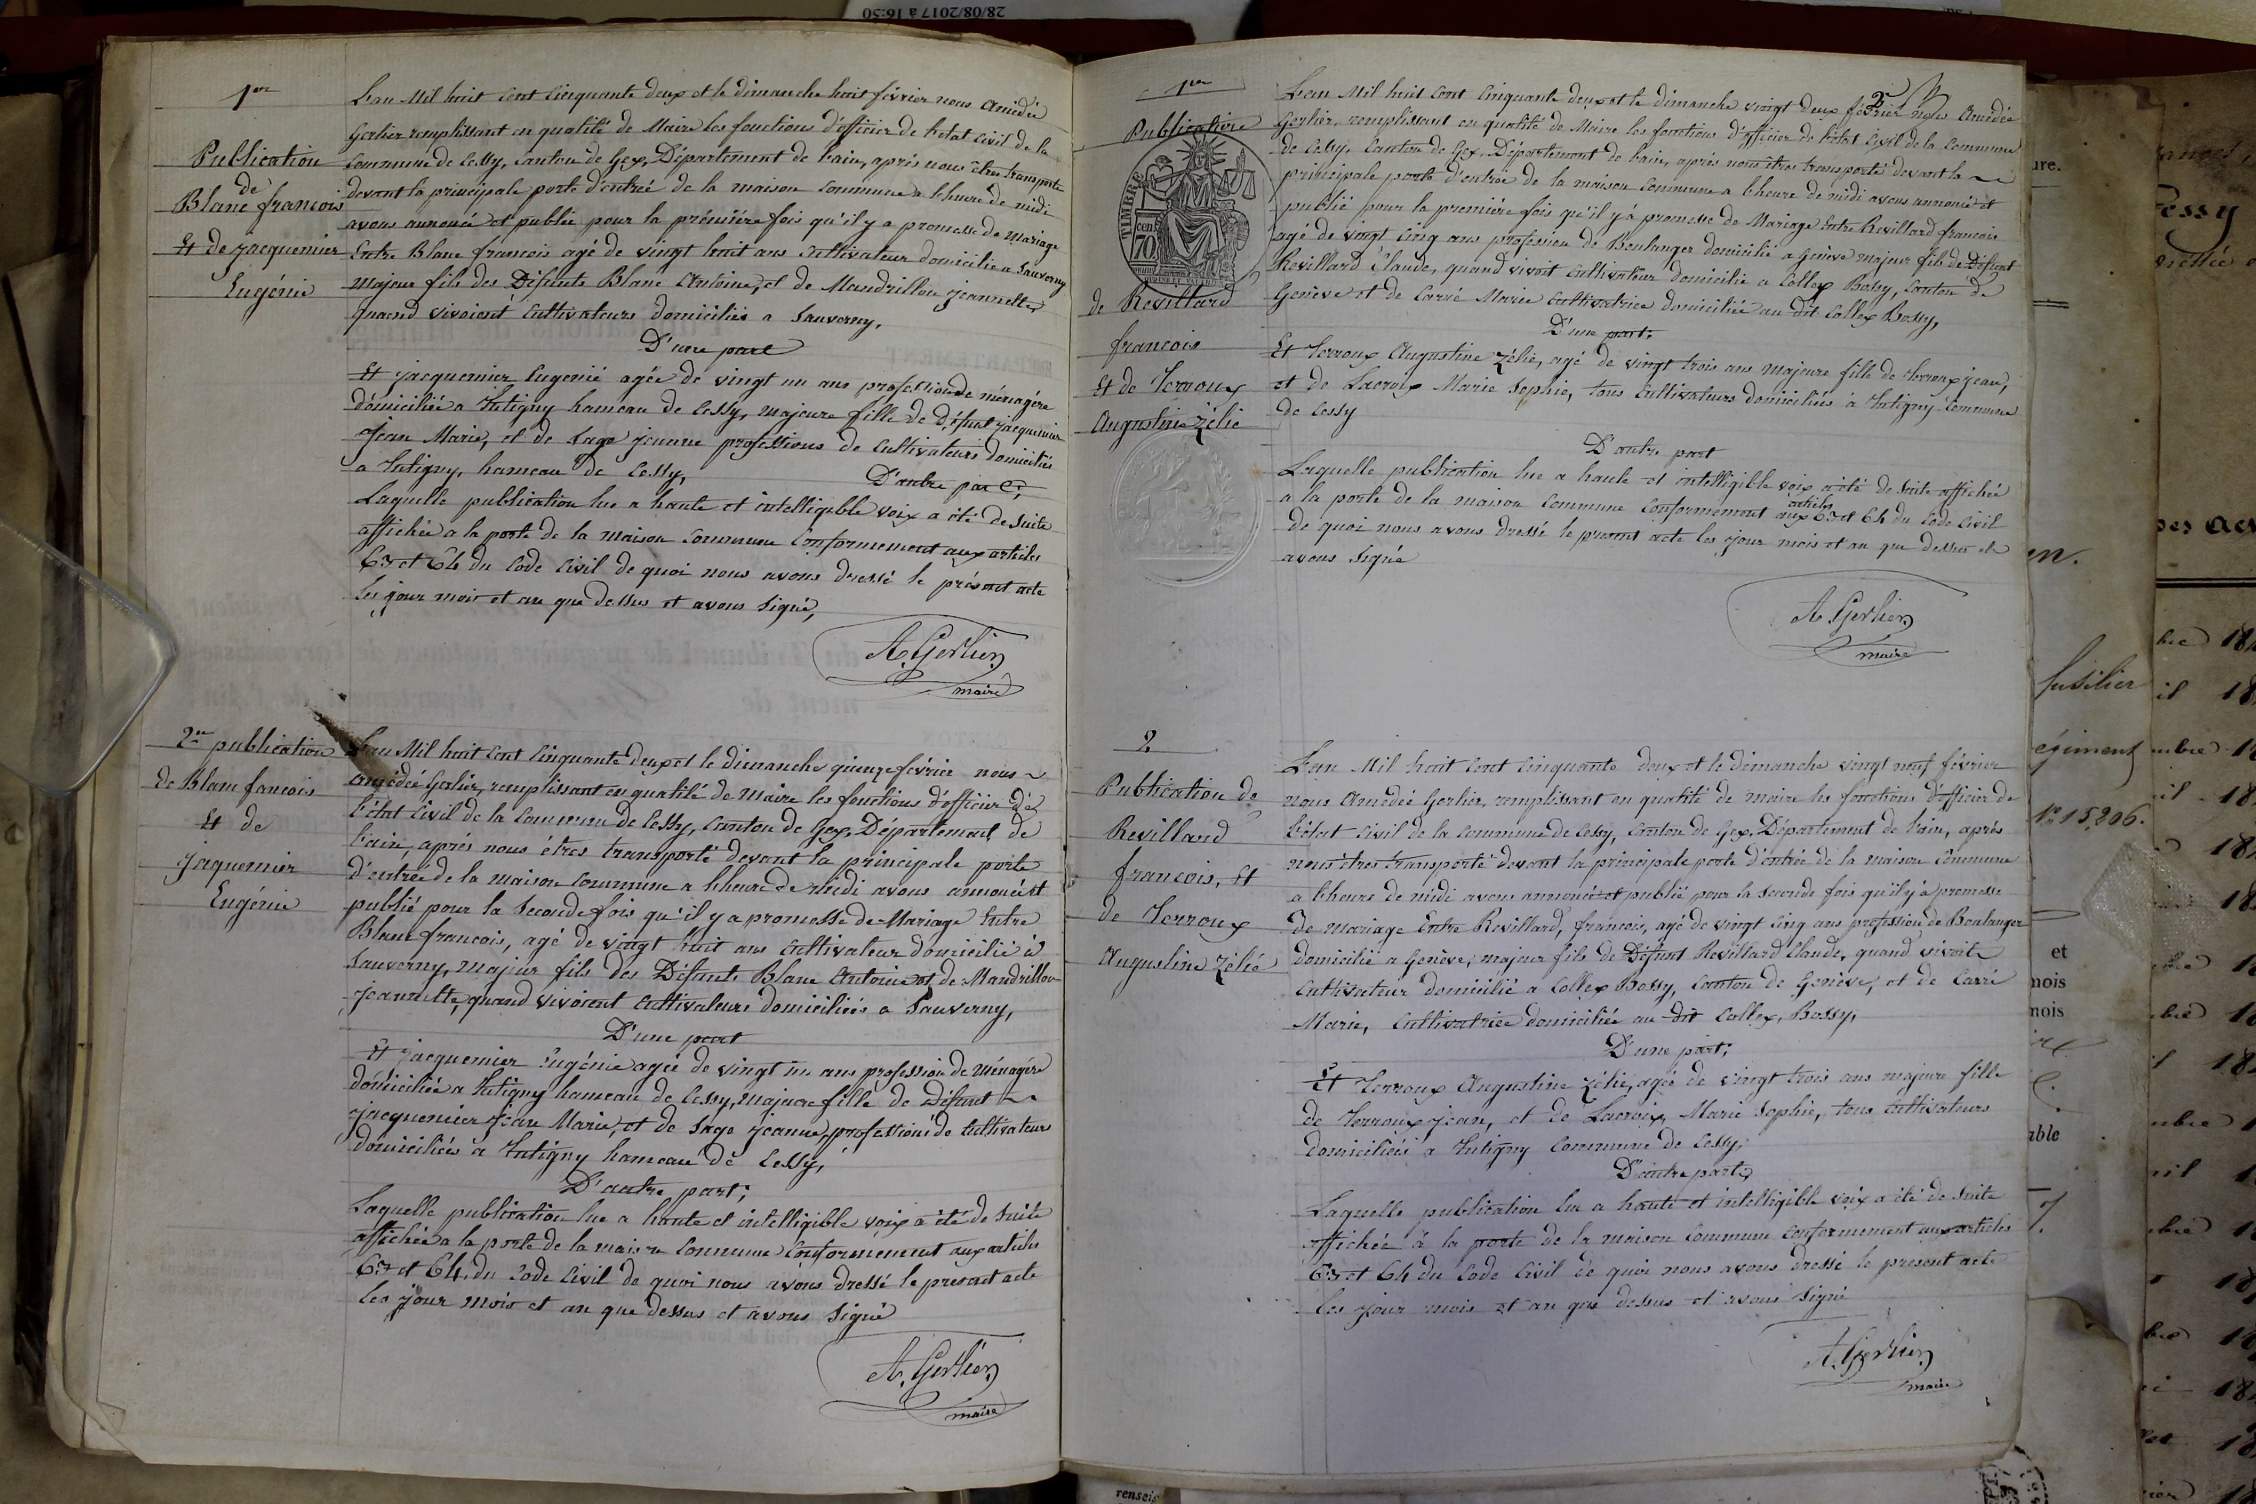 28/08/2017 à 16:50
1ere
Publication
de
Blanc francois
Et de jacquemier
Eugénie
L'an Mil huit cent Cinquante deux et le dimanche huit février nous Amédée
Gerlier remplissant en qualité de Maire les fonctions d'officier de l'etat civil de la
Commune de Cessy, canton de Gex, Département de l'ain, après nous êtres transporté
devant la principale porte d'entrée de la maison commune a l'heure de midi
avons annoncé et publié pour la première fois qu'il y a promesse de mariage
Entre Blanc francois agé de vingt huit ans Cultivateur domicilié a Sauverny
majeur fils des Défunts Blanc Antoine, et de Mandrillon jeannette,
quand vivoient Cultivateurs domiciliés a Sauverny,
D'une part
Et jacquemier Eugenie agée de vingt un ans profession de ménagère
domiciliée a Tutigny hameau de Cessy, majeure fille de Défunt jacquemier
Jean Marie, et de Sage jeanne professions de Cultivateurs domiciliés
a Tutigny, hameau de Cessy, D'autre part,
Laquelle publication lue a haute et intelligible voix a été de suite
affichée a la porte de la maison commune Conformement aux articles
63 et 64 du Code Civil de quoi nous avons dressé le présent acte
les jour mois et an que dessus et avons signé,
A. Gerlier
maire
2me publication
de Blanc fancois
Et de
jaquemier
Eugénie
L'an Mil huit cent Cinquante deux et le dimanche quinze février nous
Amédée Gerlier, remplissant en qualité de Maire les fonctions d'officier de
l'état Civil de la Commune de Cessy, Canton de Gex, Département de
l'ain, après nous êtres transporté devant la principale porte
d'entrée de la maison Commune a l'heure de midi avons annoncé et
publié pour la Seconde fois qu'il y a promesse de Mariage Entre
Blanc francois, agé de vingt huit ans Cultivateur domicilié à
Sauverny, majeur fils des Défunts Blanc Antoine et de Mandrillon
Jeannette, quand vivoient Cultivateurs domiciliés a Sauverny,
D'une part
Et jacquemier Eugénie agée de vingt un ans profession de Ménagère
domiciliée a Tutigny hameau de Cessy, majeure fille de Défunt
jacquemier Jean Marie, et de Sage jeanne, professions de Cultivateurs
domiciliés à Tutigny hameau de Cessy,
D'autre part;
Laquelle publication lue a haute et intelligible voix a été de suite
affichée a la porte de la maison Commune Conformement aux articles
63 et 64, du Code Civil de quoi nous avons dressé le present acte
les jour mois et an que dessus et avons signé
A. Gerlier
maire
1ere
Publication
TIMBRE
cent
70
de Revillard
francois
Et de Terroux
Augustine Zélie
2e
L'an Mil huit cent Cinquante deux et le dimanche vingt deux février nous Amédée
Gerlier, remplissant en qualité de Maire les fonctions d'officier de l'état Civil de la commune
de Cessy, Canton de Gex, Département de l'ain, après nous êtres transporté devant la
principale porte d'entrée de la maison Commune a l'heure de midi avons annoncé et
publié pour la première fois qu'il y a promesse de Mariage Entre Revillard francois
agé de vingt cinq ans profession de Boulanger domicilié a Genève majeur fils de Défunt
Revillard Claude, quand vivoit cultivateur domicilié a Collex Bossy, Canton de
Genève et de Carré Marie Cultivatrice domiciliée au dit Collex Bossy,
D'une part.
Et Terroux Augustine Zélie, agé de vingt trois ans majeure fille de Terroux jean,
et de Lacroix Marie Sophie, tous Cultivateurs domiciliés à Tutigny Commune
de Cessy
D'autre part
Laquelle publication lue a haute et intelligible voix a été de suite affichée
a la porte de la maison Commune Conformement aux articles 63 et 64 du Code Civil
de quoi nous avons dressé le present acte les jour mois et an que dessus et
avons signé
A. Gerlier
maire
2
Publication de
Revillard
francois, Et
de Terroux
Augustine Zélie
L'an Mil huit cent Cinquante deux et le dimanche vingt neuf février
nous Amédée Gerlier, remplissant en qualité de maire les fonctions d'officier de
l'état Civil de la Commune de Cessy, Canton de Gex, Département de l'ain, après
nous êtres transporté devant la principale porte d'entrée de la maison Commune
a l'heure de midi avons annoncé et publié pour la Seconde fois qu'il y a promesse
de mariage Entre Revillard, francois, agé de vingt cinq ans profession de Boulanger
domicilié a Genève, majeur fils de Défunt Revillard Claude, quand vivoit
Cultivateur domicilié a Collex Bossy, Canton de Genève, et de Carré
Marie, Cultivatrice domiciliée au dit Collex, Bossy,
D'une part;
Et Terroux Augustine Zélie, agée de vingt trois ans majeure fille
de Terroux jean, et de Lacroix, Marie Sophie, tous Cultivateurs
domiciliés a Tutigny Commune de Cessy,
D'autre part,
Laquelle publication lue a haute et intelligible voix a été de suite
affichée à la porte de la maison Commune conformement aux articles
63 et 64 du Code Civil de quoi nous avons dressé le present acte
les jour mois et an que dessus et avons signé
A. Gerlier
maire
fusilier
égiment
No 15,206.
et
mois
mois
able
renseig